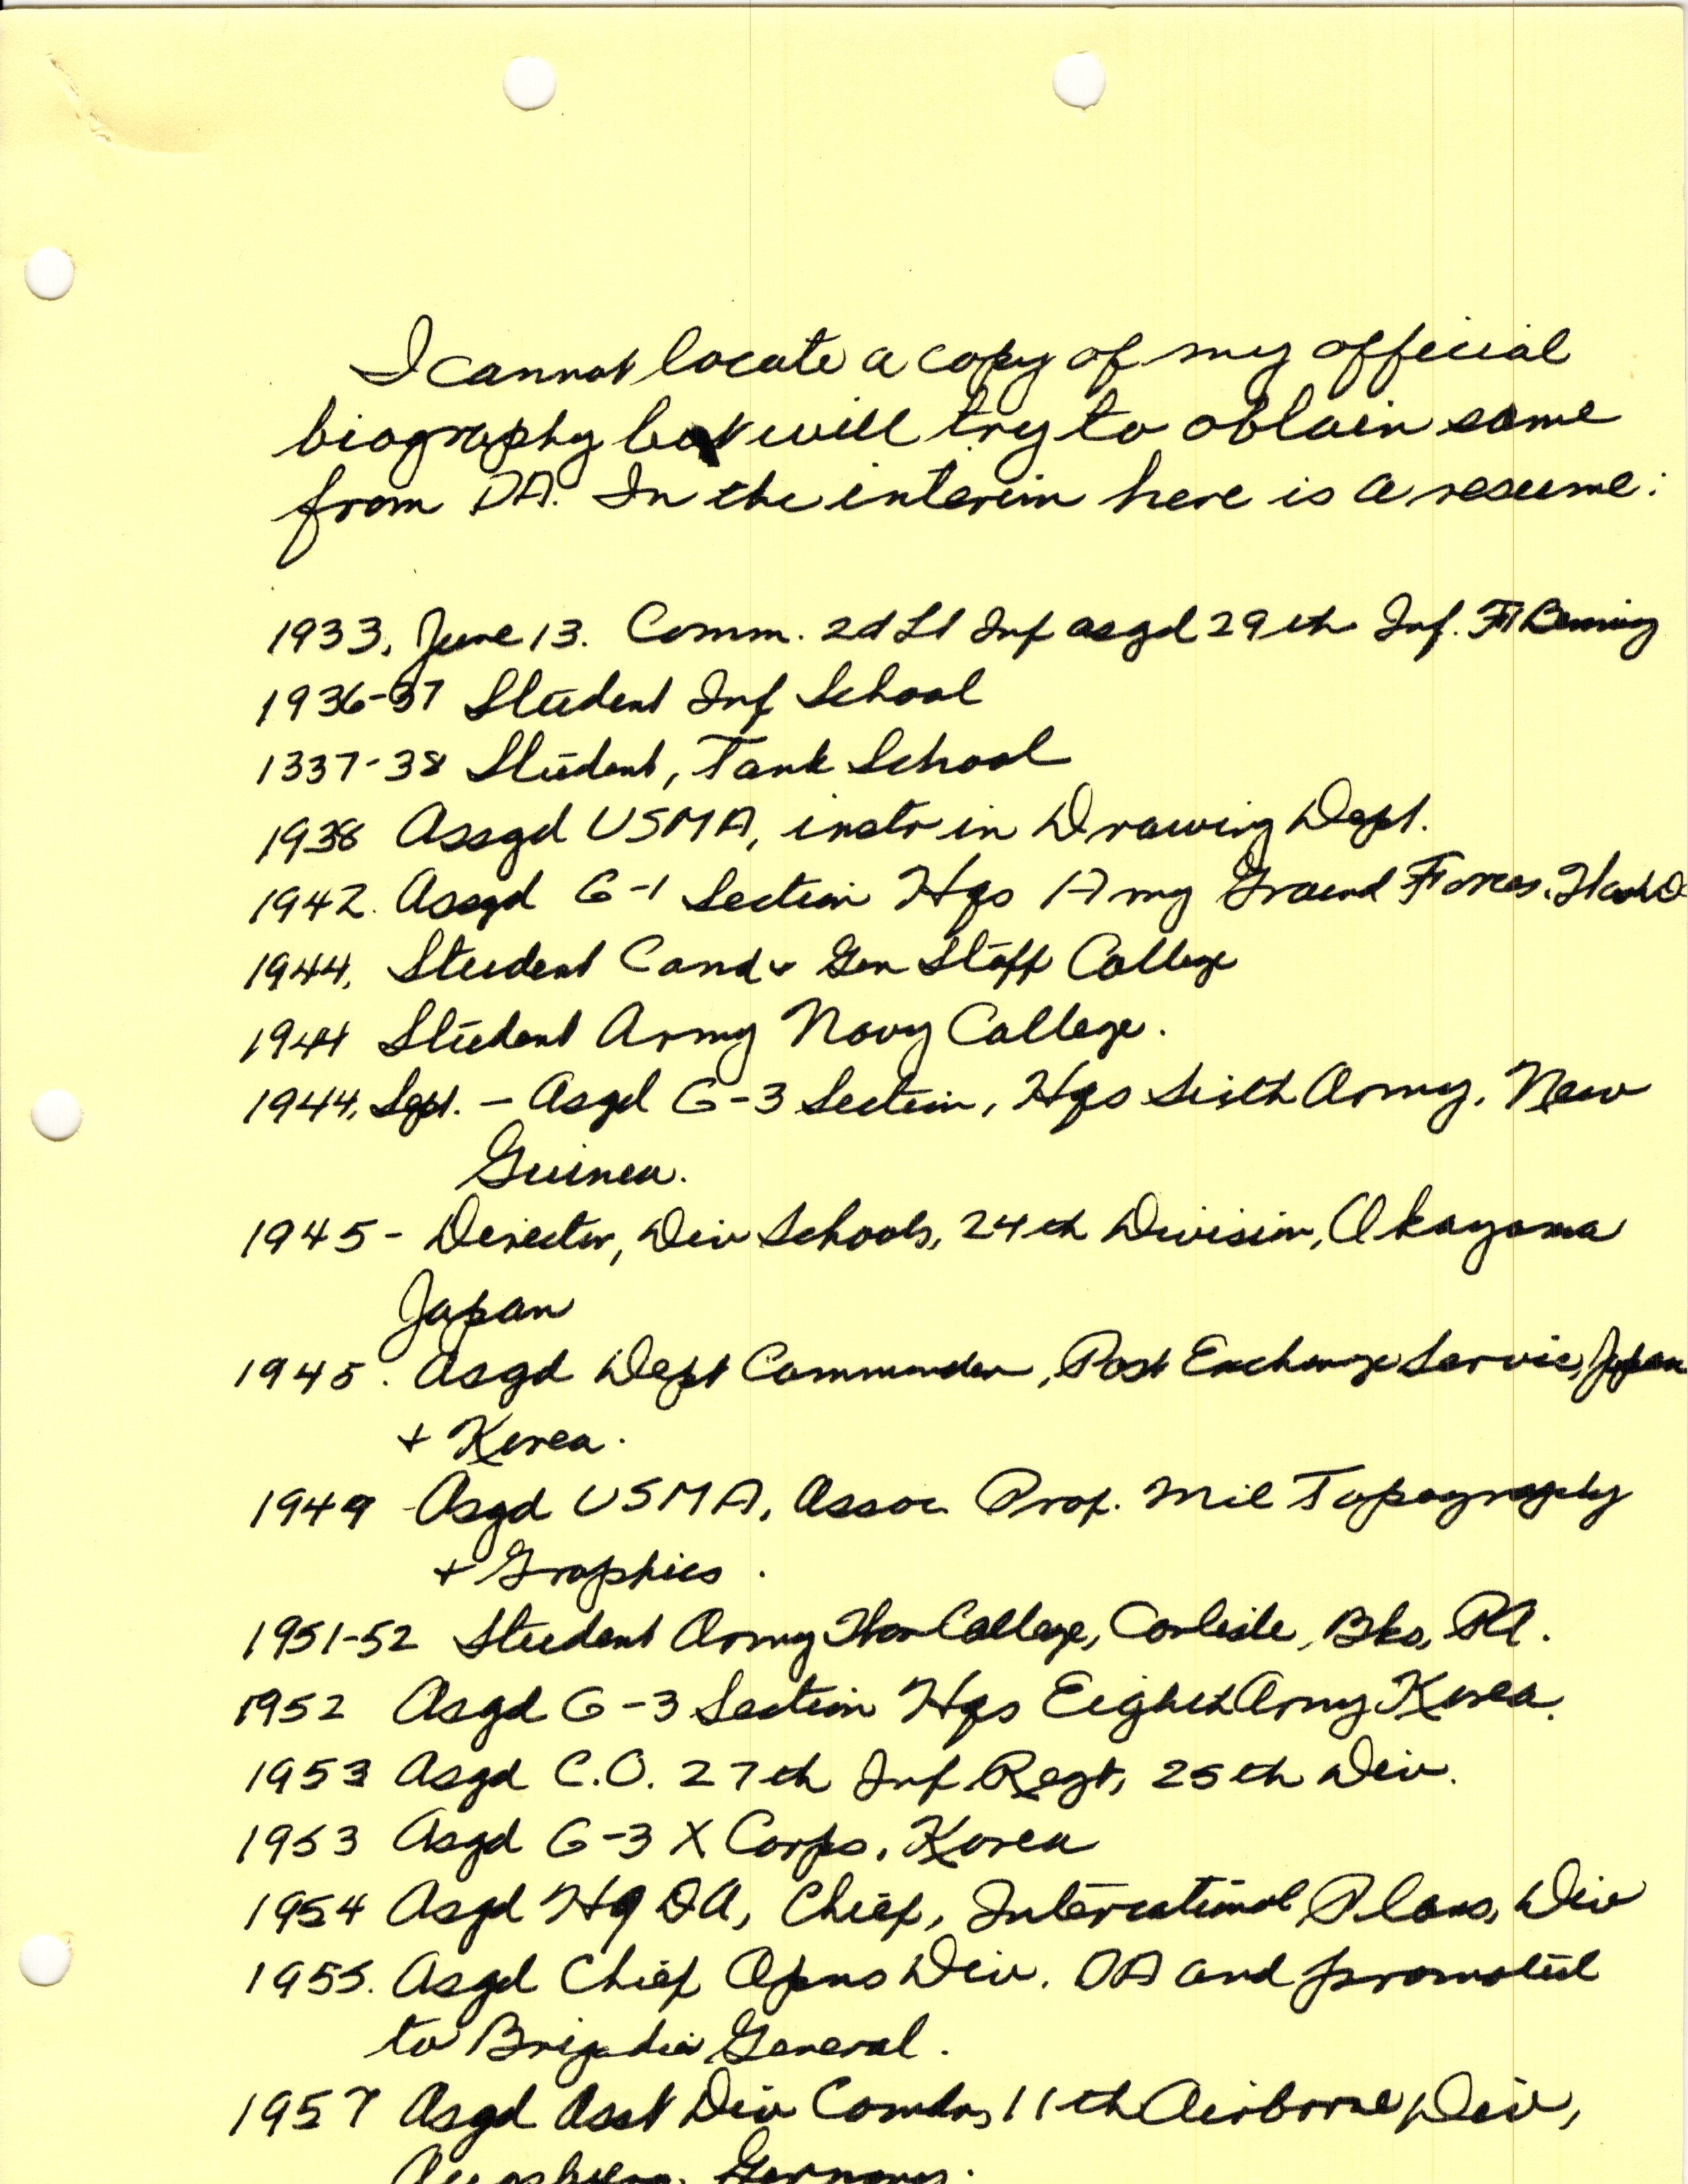 I cannot locate a copy of my official
biography but will try to obtain same
from DA. In the interim here is a resume:
1933, June 13. Comm. 2d Lt Inf asgd 29th Inf. Ft Benning
1936-37 Student Inf School
1337-38 Student, Tank School
1938 Assgd USMA, instr in Drawing Dept.
1942. Assgd G-1 Section Hqs Army Ground Forces. Wash D
1944, Student Comd & Gen Staff College
1944 Student Army Navy College.
1944, Sept. - Asgd G-3 Section, Hqs Sixth Army, New
Guinea.
1945 - Director, Div Schools, 24th Division, Okayama
Japan
1945. Asgd Dept Commander, Post Exchange Service, Japan
+ Korea.
1949 Asgd USMA, Assoc Prof. Mil Topography
+ Graphics.
1951-52 Student Army War College, Carlisle, Bks, PA.
1952 Asgd G-3 Section Hqs Eighth Army Korea.
1953 Asgd C.O. 27th Inf Regt, 25th Div.
1953 Asgd G-3 X Corps, Korea
1954 Asgd Hq DA, Chief, International Plans, Div
1955. Asgd Chief Opns Div. DA and promoted
to Brigadier General.
1957 Asgd Asst Div Comdr, 11th Airborne Div,
Augsburg, Germany.